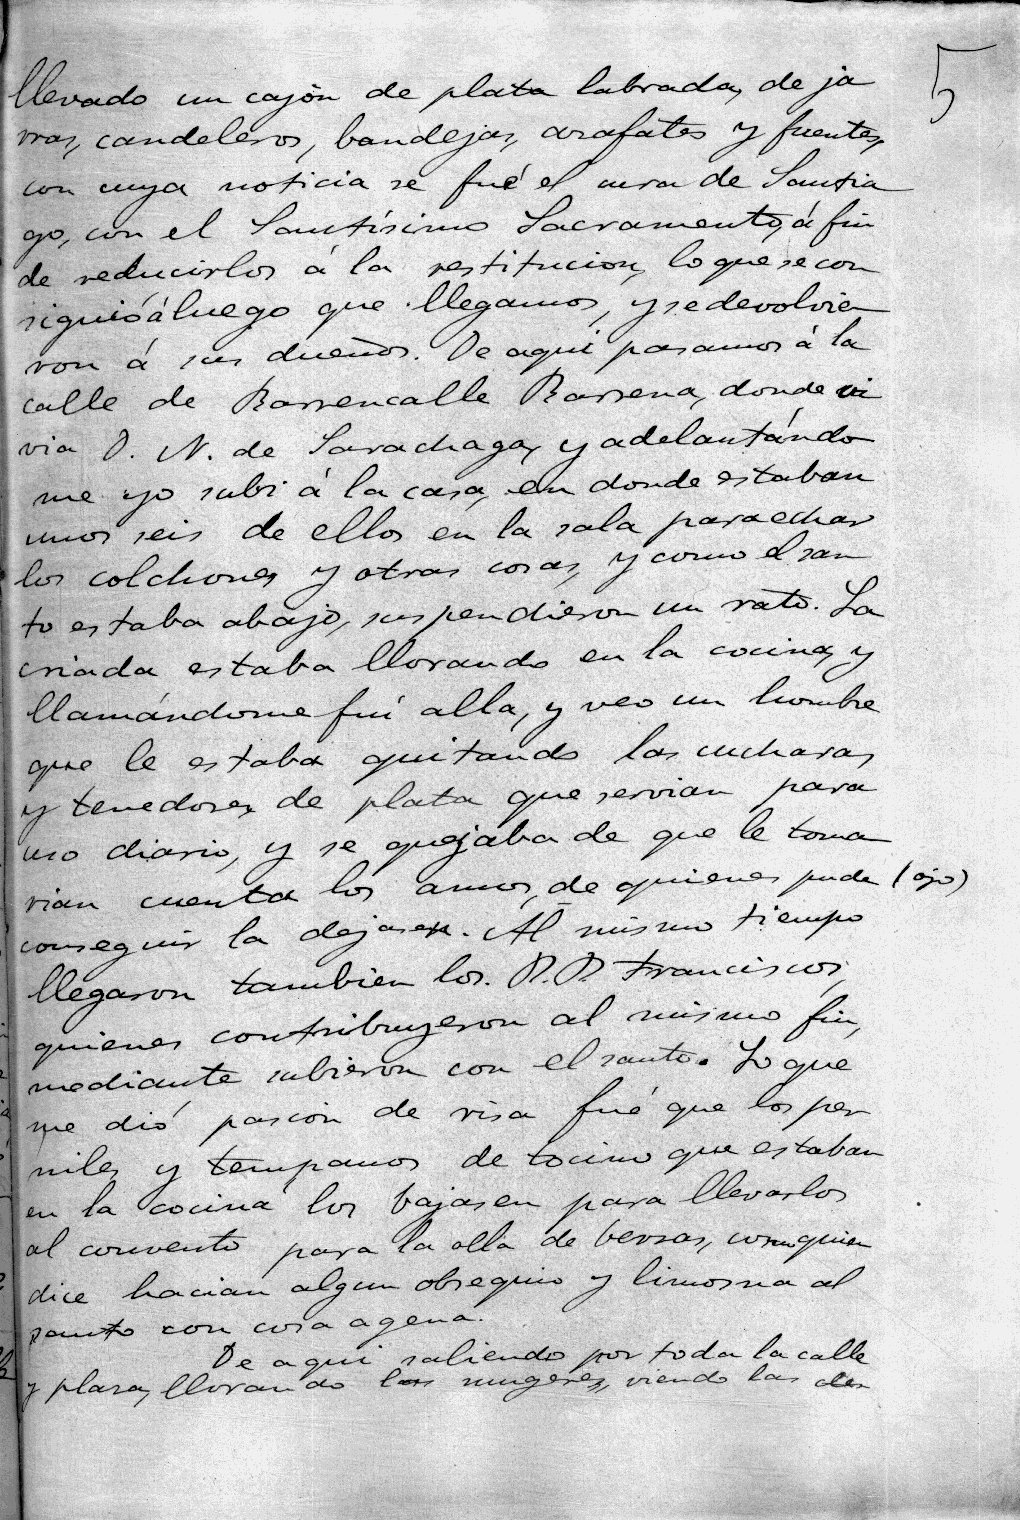 5
llevado un cajón de plata labrada, de ja
rras, candeleros, bandejas, azafates y fuentes,
con cuya noticia se fué el cura de Santia
go, con el Santísimo Sacramento, á fin
de reducirlos á la restitucion, lo que se con
siguió á luego que llegamos, y se devolvie
ron á sus dueños. De aqui pasamos á la
calle de Barrencalle Barrena, donde vi
via D. N. de Sarachaga, y adelantándo
me yo subi á la casa, en donde estaban
unos seis de ellos en la sala para echar
los colchones y otras cosas, y como el san
to estaba abajo, suspendieron un rato. La
criada estaba llorando en la cocina, y
llamándome fuí alla, y veo un hombre
que le estaba quitando las cucharas
y tenedores de plata que servian para
uso diario, y se quejaba de que le toma
rian cuenta los amos, de quienes pude (ojo)
conseguir la dejasen. Al mismo tiempo
llegaron tambien los. P.P. Franciscos,
quienes contribuyeron al mismo fin,
mediante subieron con el santo. Lo que
me dió pasion de risa fué que los per
niles y tempanos de tocino que estaban
en la cocina los bajasen para llevarlos
al convento para la olla de berzas, como quien
dice hacian algun obsequio y limosna al
santo con cosa agena.
De aqui saliendo por toda la calle
y plaza, llorando las mugeres, viendo las